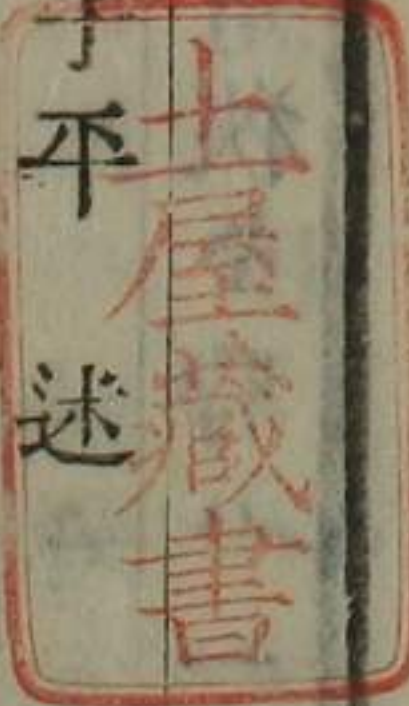 土屋藏書
子平述